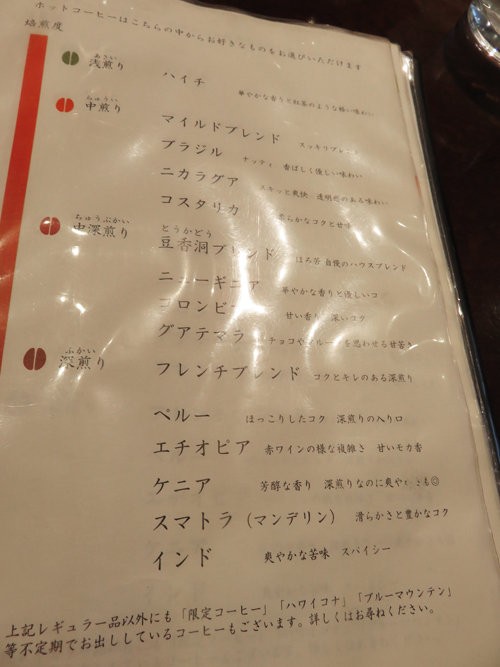 ホットコーヒーはこちらの中からお好きなものをお選びいただけます
焙煎度
あさい
浅煎り
ハイチ 華やかな香りと紅茶のような軽い味わい
ちゅうい
中煎り
マイルドブレンド スッキリブレンド
ブラジル ナッティ 香ばしく優しい味わい
ニカラグア スキッと爽快 透明感のある味わい
コスタリカ 柔らかなコクと甘さ
ちゅうぶかい とうかどう
中深煎り 豆香洞ブレンド ほろ苦 自慢のハウスブレンド
ニューギニア 華やかな香りと優しいコ
コロンビ 甘い香り 深いコク
グアテマラ チョコやフルー を思わせる甘苦さ
ふかい
深煎り フレンチブレンド コクとキレのある深煎り
ペルー ほっこりしたコク 深煎りの入り口
エチオピア 赤ワインの様な複雑さ 甘いモカ香
ケニア 芳醇な香り 深煎りなのに爽や さも☺
スマトラ（マンデリン） 滑らかさと豊かなコク
インド 爽やかな苦味 スパイシー
上記レギュラー品以外にも「限定コーヒー」「ハワイコナ」「ブルーマウンテン」
等不定期でお出ししているコーヒーもございます。詳しくはお尋ねください。